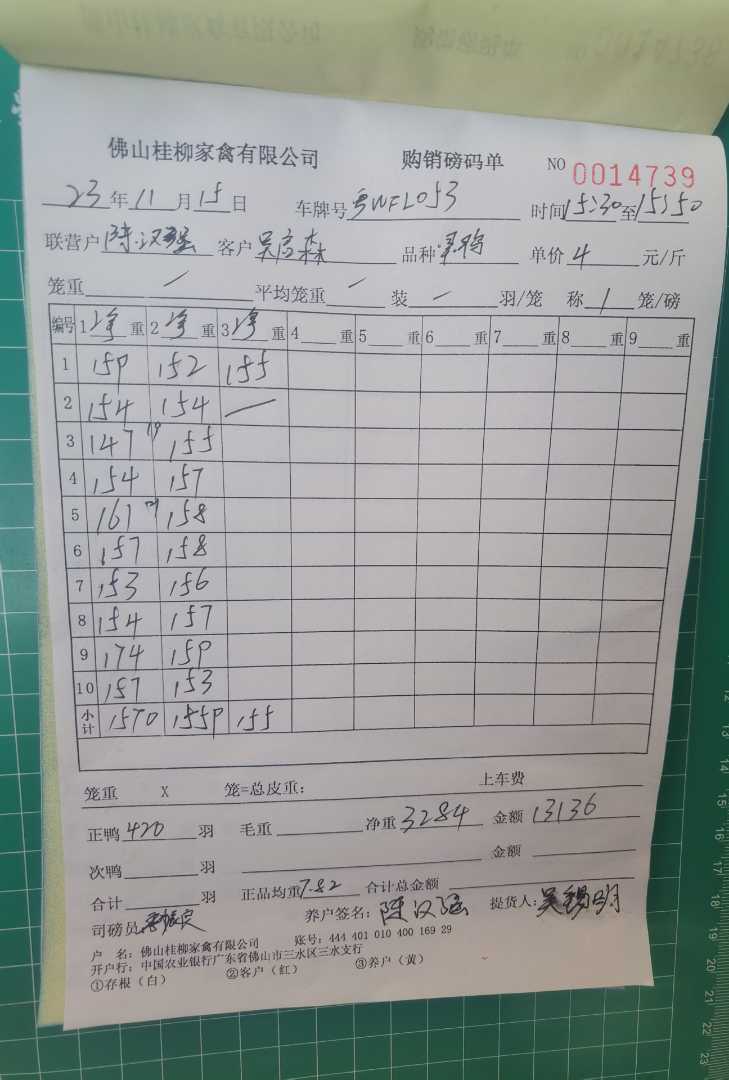 佛山桂柳家禽有限公司 购销磅码单 NO 0014739
23年11月15日 车牌号粤WFL053 时间15:30至15:50
联营户陈汉强 客户 品种 单价4元/斤
笼重 / 平均笼重 / 装 / 羽/笼 称 1 笼/磅
编号 1净重 2净重 3净重 4重 5重 6重 7重 8重 9重
1 159 152 155
2 154 154 —
3 147 19 155
4 154 157
5 161 21 158
6 157 158
7 153 156
8 154 157
9 174 159
10 157 153
小计 1570 1559 155
笼重 X 笼=总皮重: 上车费
正鸭420羽 毛重 净重3284 金额13136
次鸭 羽 金额
合计 羽 正品均重7.82 合计总金额
司磅员 养户签名: 陈汉强 提货人: 吴锡明
户 名: 佛山桂柳家禽有限公司 账号: 444 401 010 400 169 29
开户行: 中国农业银行广东省佛山市三水区三水支行
①存根（白） ②客户（红） ③养户（黄）